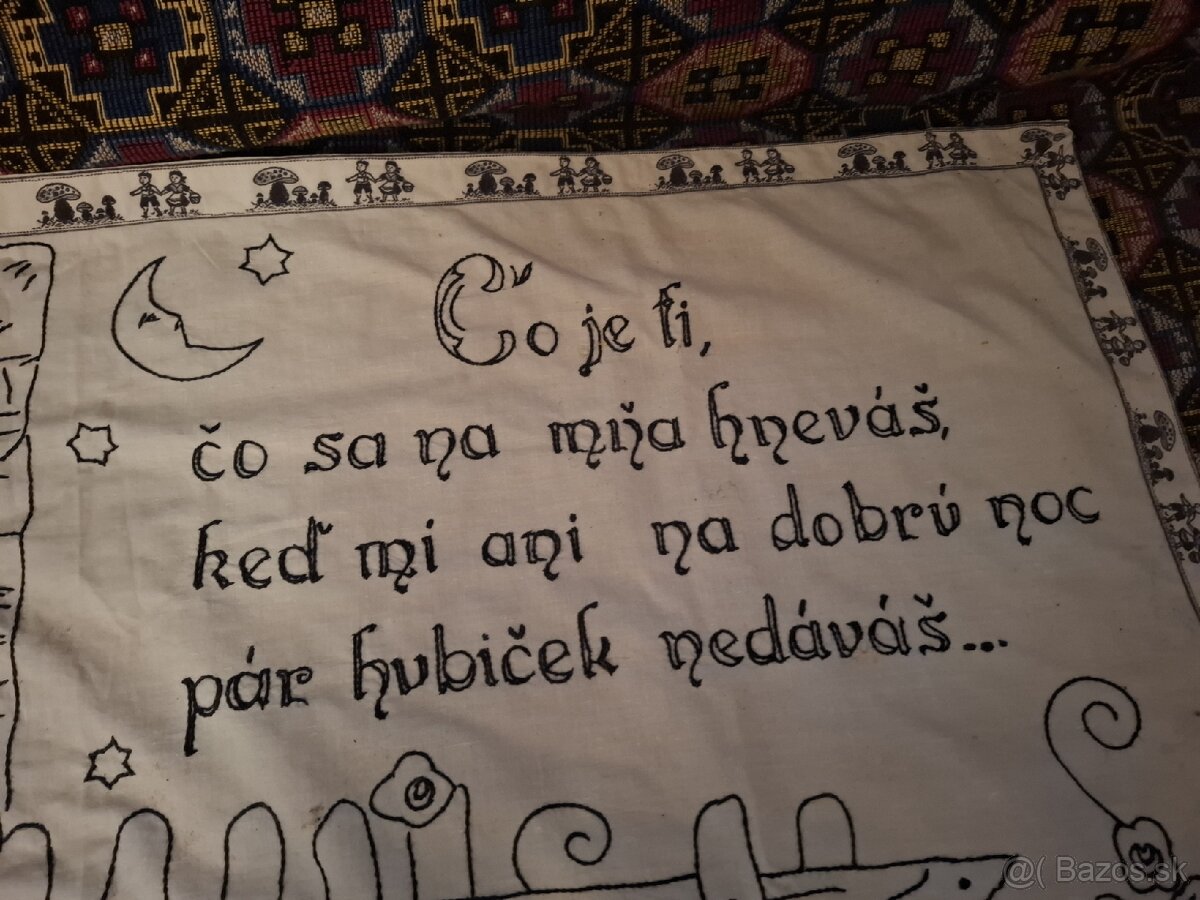 Čo je ti,
čo sa na mňa hneváš,
keď mi ani na dobrú noc
pár hubiček nedáváš...
@( Bazos.sk